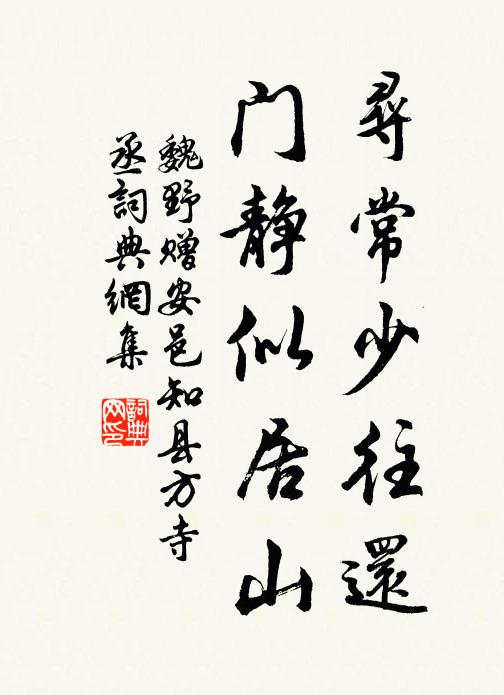 尋常少往還
门静似居山
魏野赠安邑知县方寺
丞詞典網集
詞典网印